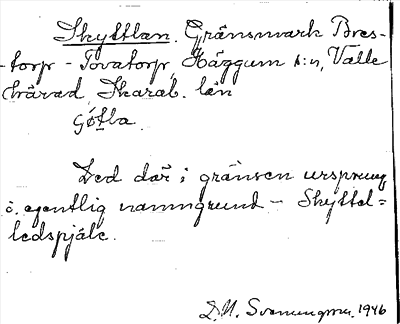 Skyttlan. Gränsmark Bres-
torp - Tovatorp, Häggum s:n, Valle
härad, Skarab. län
Götla.
Led där i gränsen ursprung
o. egentlig namngrund - Skyttel=
ledspjäle.
D.N. Svenningsson. 1946